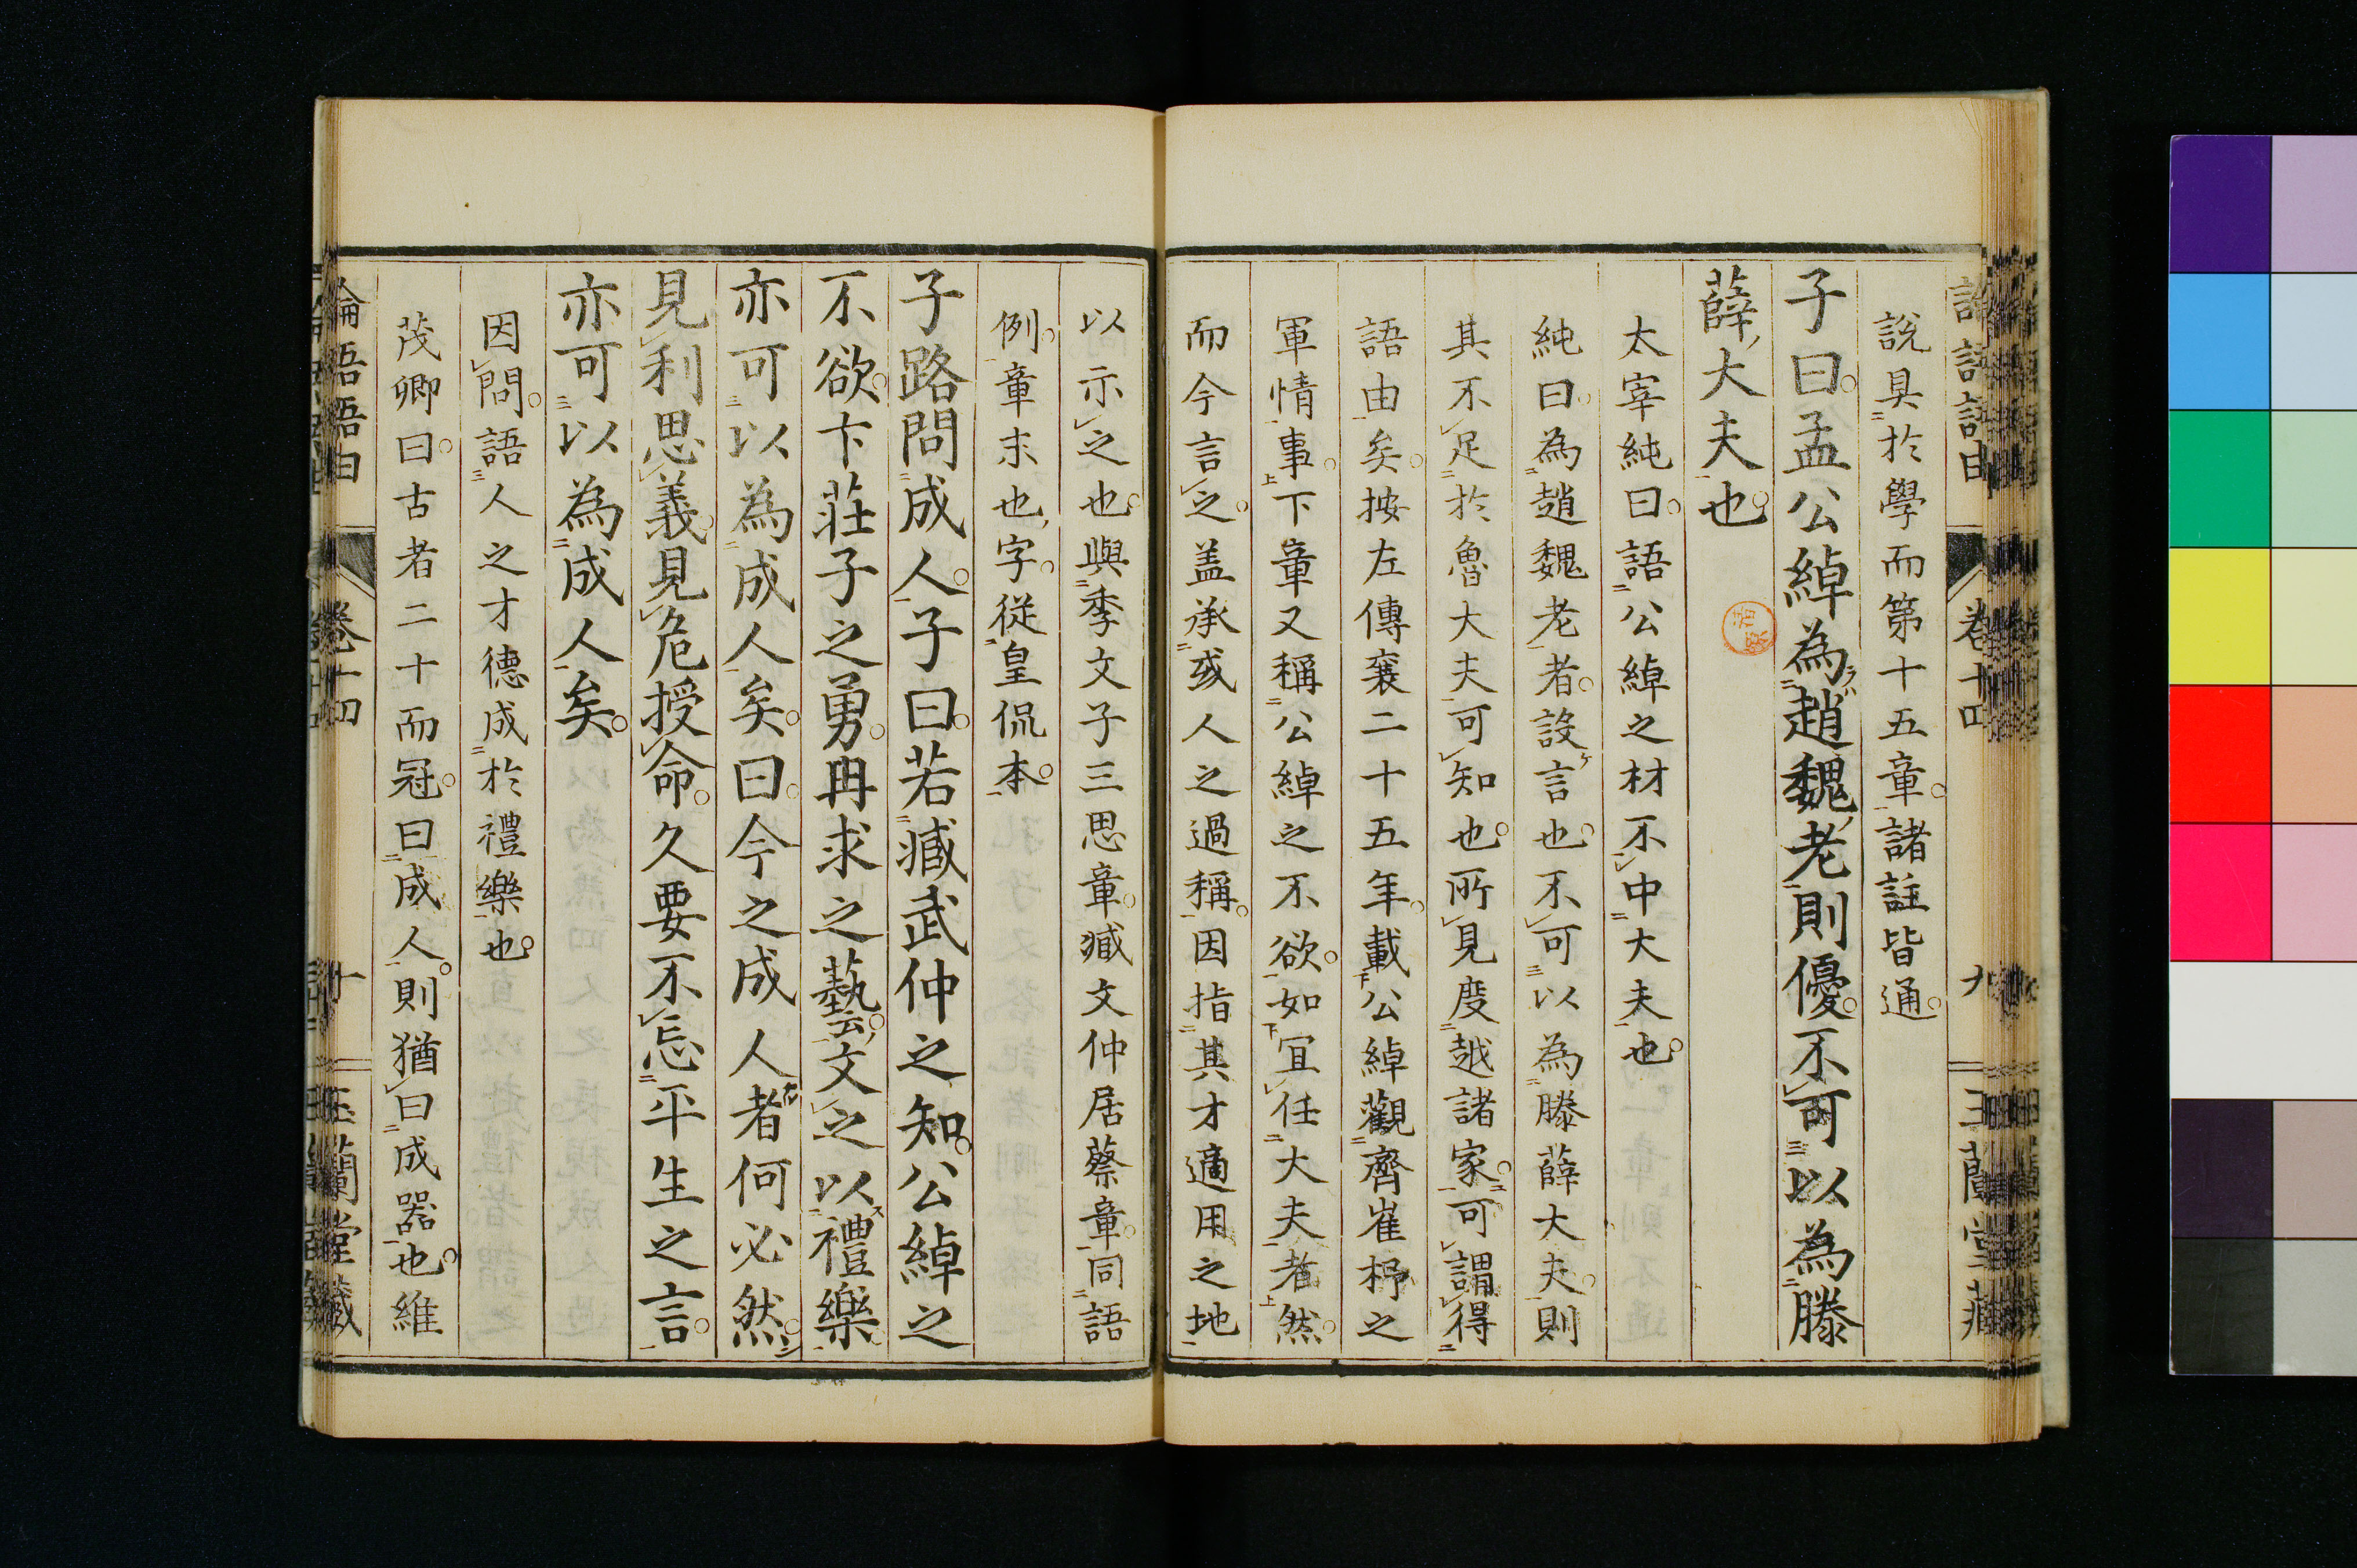 說具於學而第十五章諸註皆通
子曰孟公綽為趙魏老則優不可以為滕
薛大夫也
太宰純曰語公綽之材不中大夫也
純曰為趙魏老者設言也不可以為滕薛大夫則
其不足於魯大夫可知也所見度越諸家可謂得
語由矣按左傳襄二十五年載公綽觀齊崔杼之
軍情事下章又稱公綽之不欲如宜任大夫者然
而今言之盖承或人之過稱因指其才適用之地
以示之也與季文子三思章臧文仲居蔡章同語
例章末也字從皇侃本
子路問成人子曰若臧武仲之知公綽之
不欲卞莊子之勇冉求之藝文之以禮樂
亦可以為成人矣曰今之成人者何必然
見利思義見危授命久要不忘平生之言
亦可以為成人矣
因問語人之才德成於禮樂也
茂卿曰古者二十而冠曰成人則猶曰成器也維
論語語由 卷十四 十 玉蘭堂藏